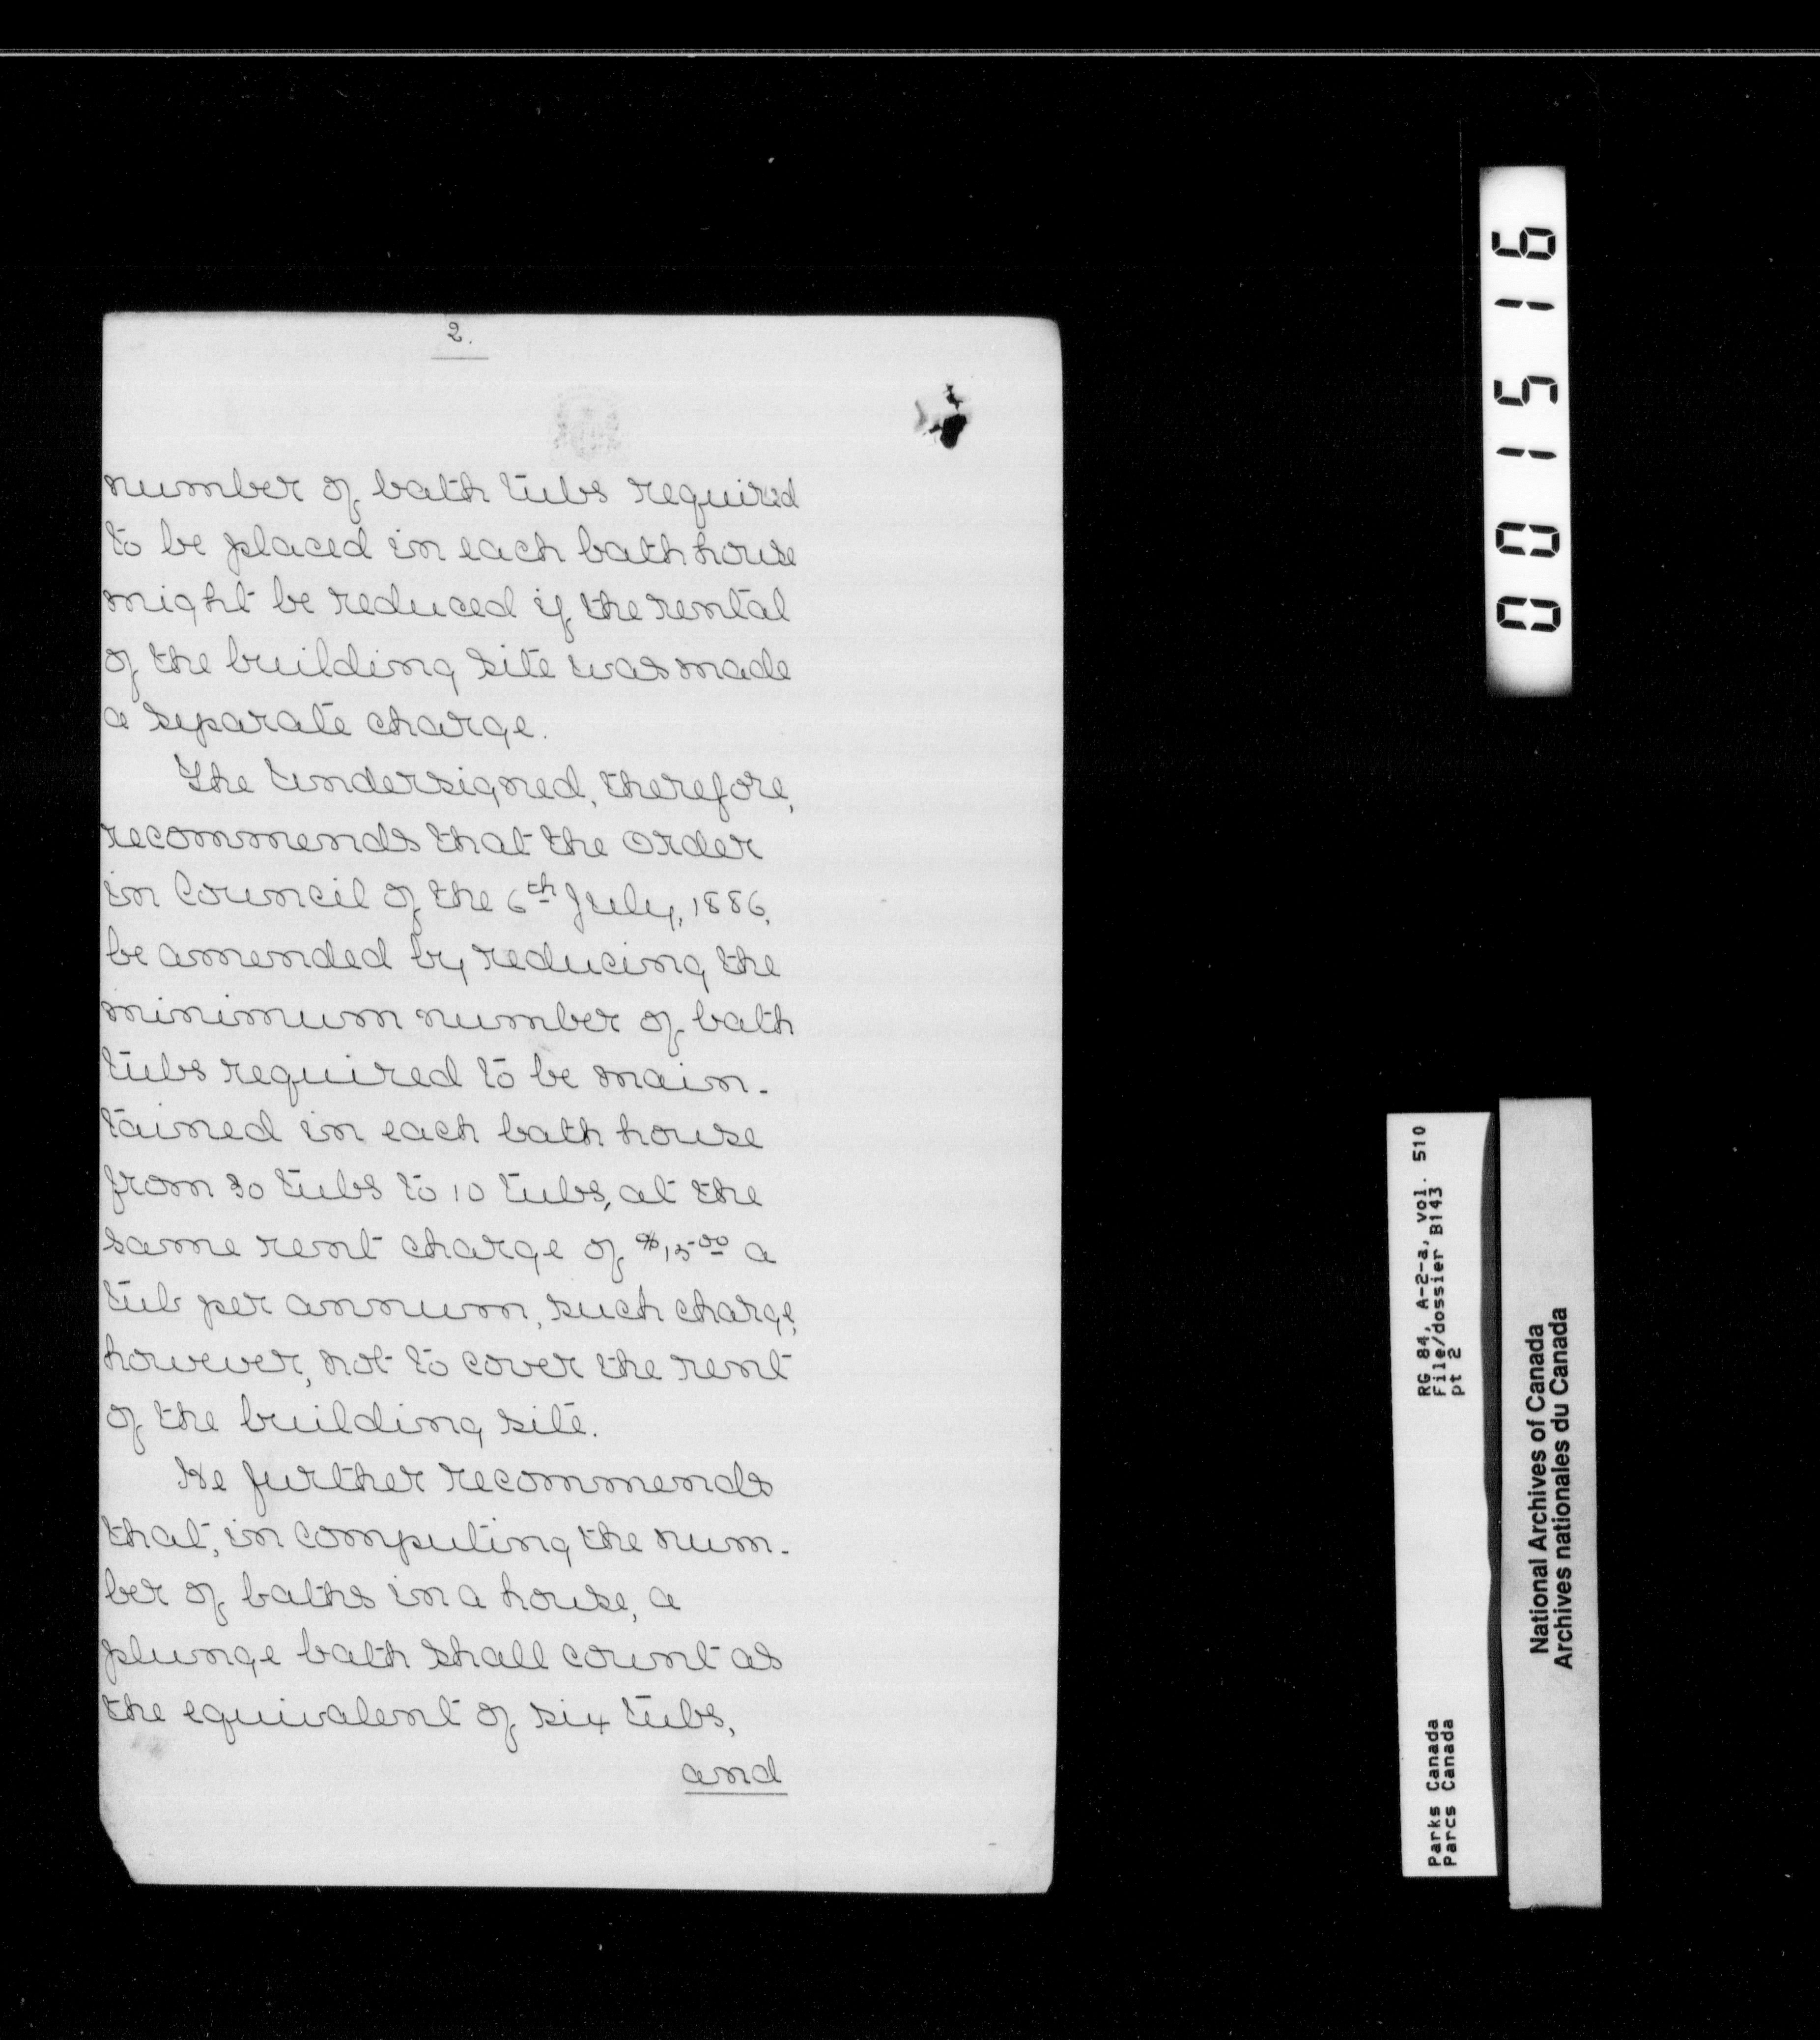 2.
number of bath tubs required
to be placed in each bath house
might be reduced if the rental
of the building site was made
a separate charge.
The Undersigned, therefore,
recommends that the Order
in Council of the 6th July, 1886,
be amended by reducing the
minimum number of bath
tubs required to be main-
tained in each bath house
from 30 tubs to 10 tubs, at the
same rent charge of $15.00 a
tub per annum, such charge,
however, not to cover the rent
of the building site.
He further recommends
that, in computing the num-
ber of baths in a house, a
plunge bath shall count as
the equivalent of six tubs,
and
001516
RG 84, A-2-a, vol. 510
File/dossier B143
pt 2
Parks Canada
Parcs Canada
National Archives of Canada
Archives nationales du Canada